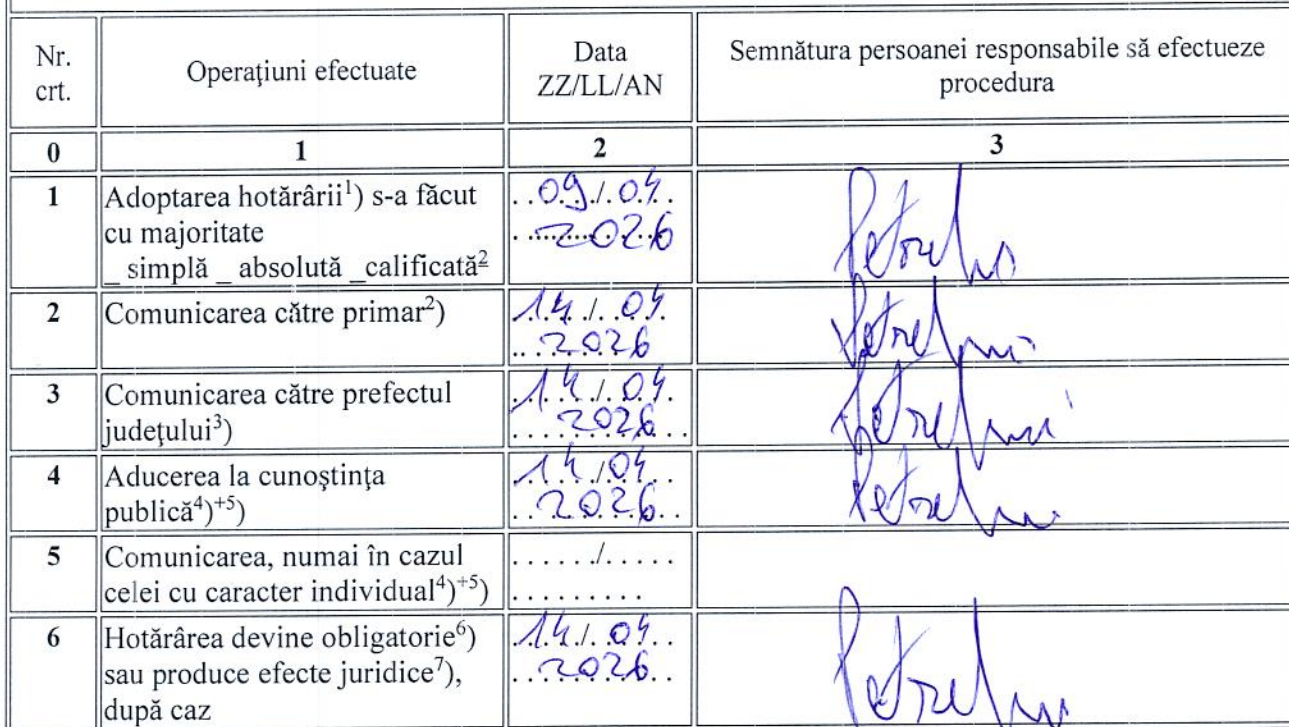 Nr. crt.
Operaţiuni efectuate
Data ZZ/LL/AN
Semnătura persoanei responsabile să efectueze procedura
0
1
2
3
1
Adoptarea hotărârii¹) s-a făcut
cu majoritate
_ simplă _ absolută _calificată²
09/04.
2026
2
Comunicarea către primar²)
14/04.
2026
3
Comunicarea către prefectul
judeţului³)
14/04.
2026
4
Aducerea la cunoştinţa
publică⁴)⁺⁵)
14/04.
2026
5
Comunicarea, numai în cazul
celei cu caracter individual⁴)⁺⁵)
....../.....
.........
6
Hotărârea devine obligatorie⁶)
sau produce efecte juridice⁷),
după caz
14/04.
2026